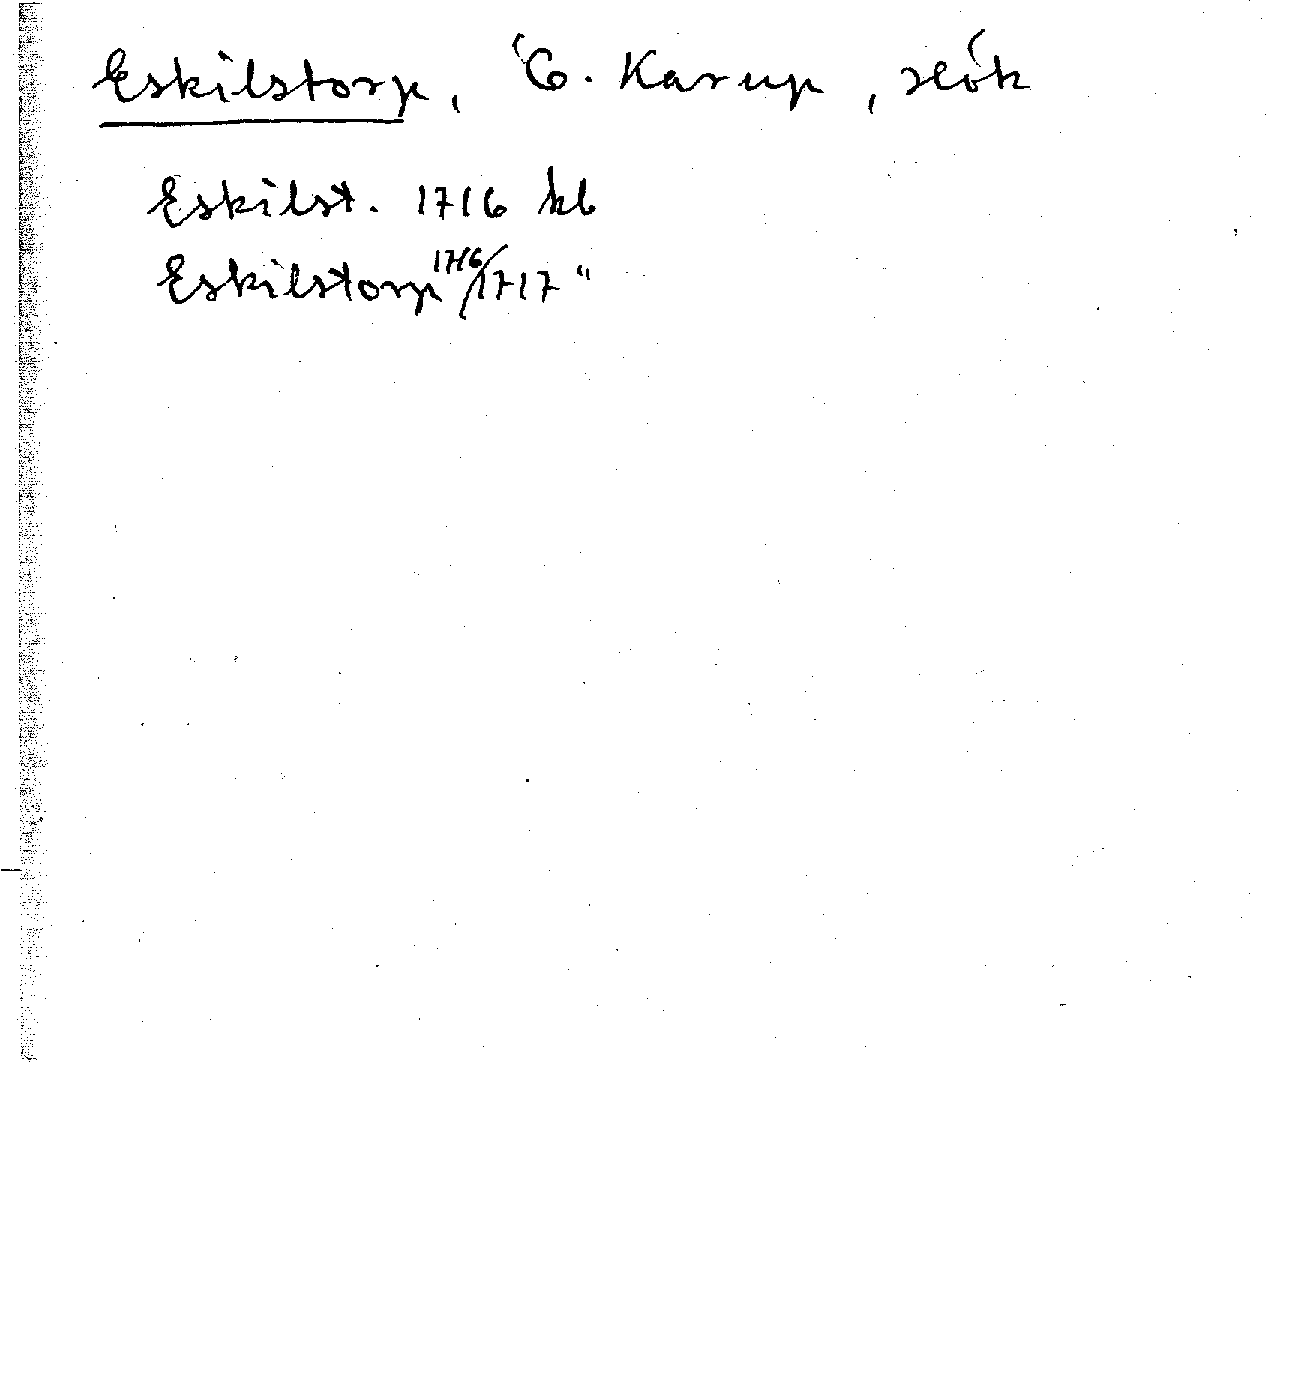 Eskilstorp, Ö. Karup, Hök
Eskilst. 1716 kb
Eskilstorp 1716/1717 "